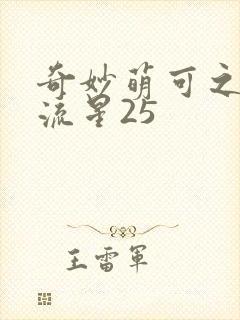 奇妙萌可之
流星25
王雷军